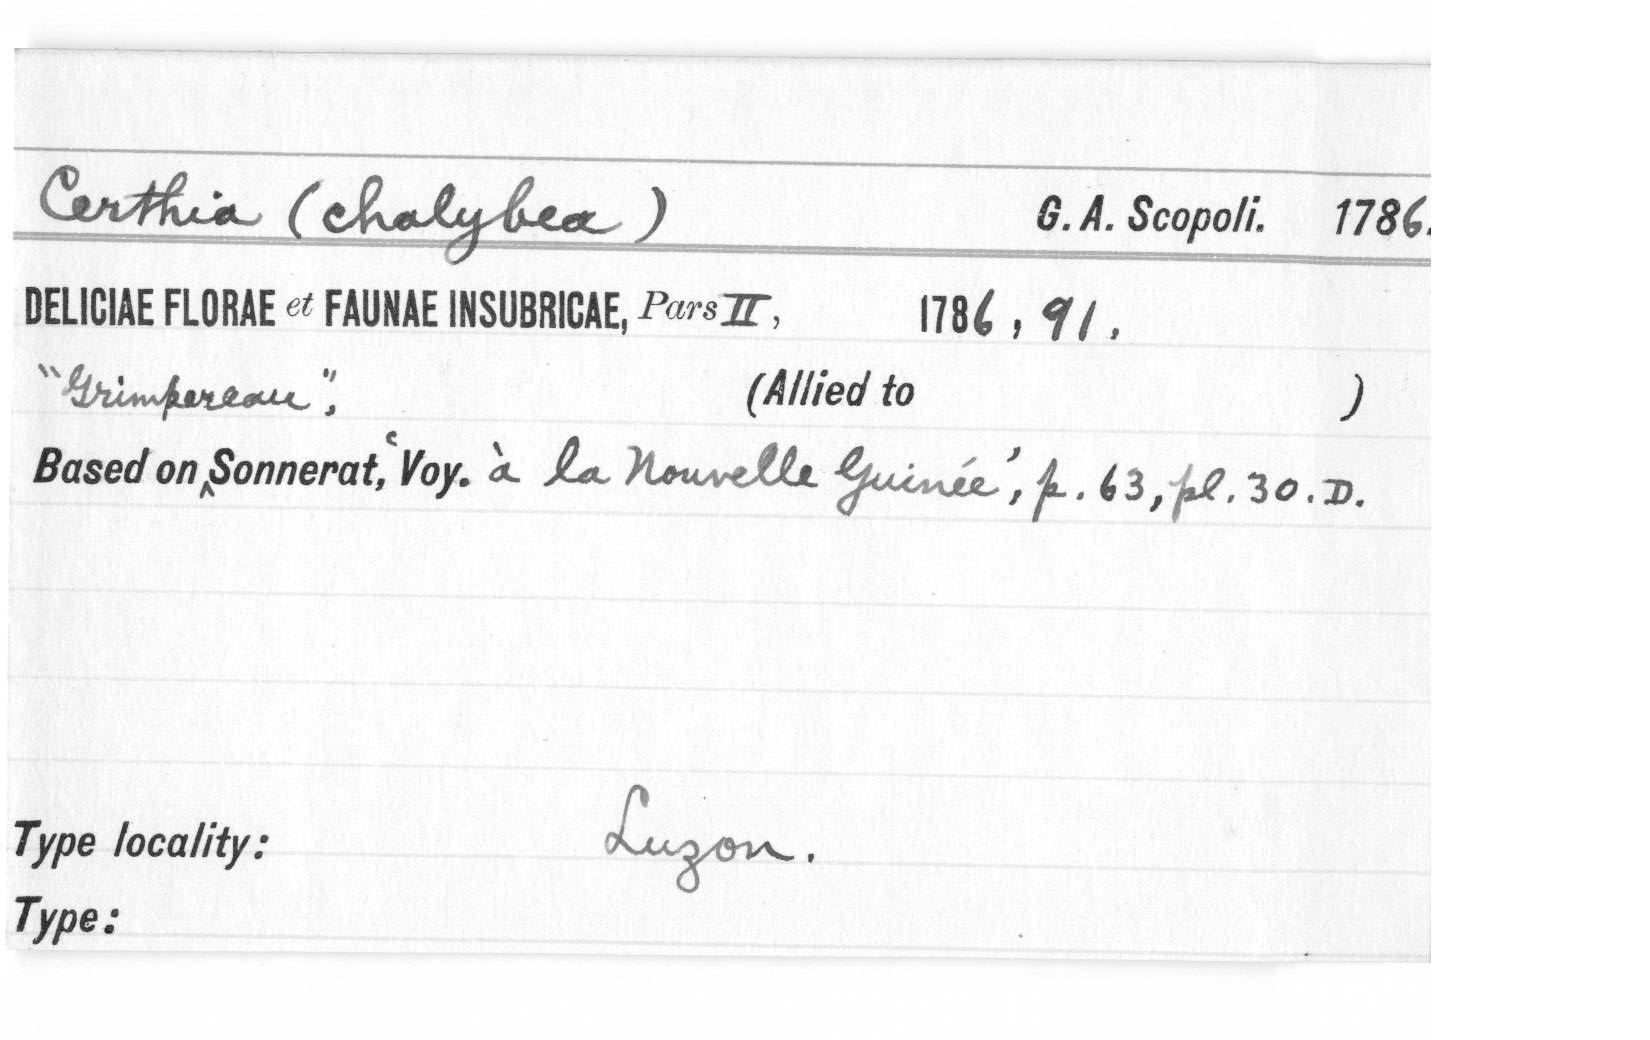 Certhia (chalybea) G. A. Scopoli. 1786.
DELICIAE FLORAE et FAUNAE INSUBRICAE, Pars II, 1786, 91.
"Grimpereau", (Allied to )
Based on ‸Sonnerat, ‘Voy. à la Nouvelle Guinée’, p. 63, pl. 30. D.
Type locality: Luzon.
Type: